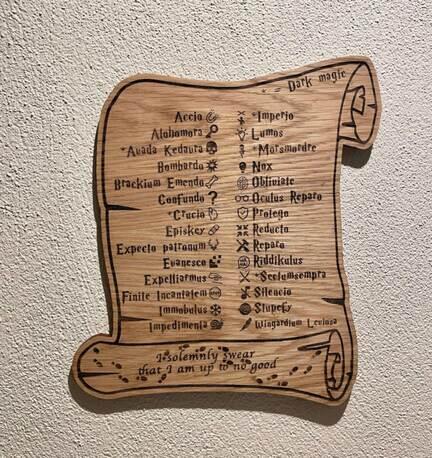 * = Dark magic
Accio
Alohomora
*Avada Kedaura
Bombarda
Brackium Emendo
Confundo
*Crucio
Episkey
Expecto patronum
Evanesco
Expelliarmus
Finite Incantatem
Immobulus
Impedimenta
*Imperio
Lumos
*Morsmordre
Nox
Obliviate
Oculus Reparo
Protego
Reducto
Reparo
Riddikulus
*Sectumsempra
Silencio
Stupefy
Wingardium Leviosa
I solemnly swear
that I am up to no good